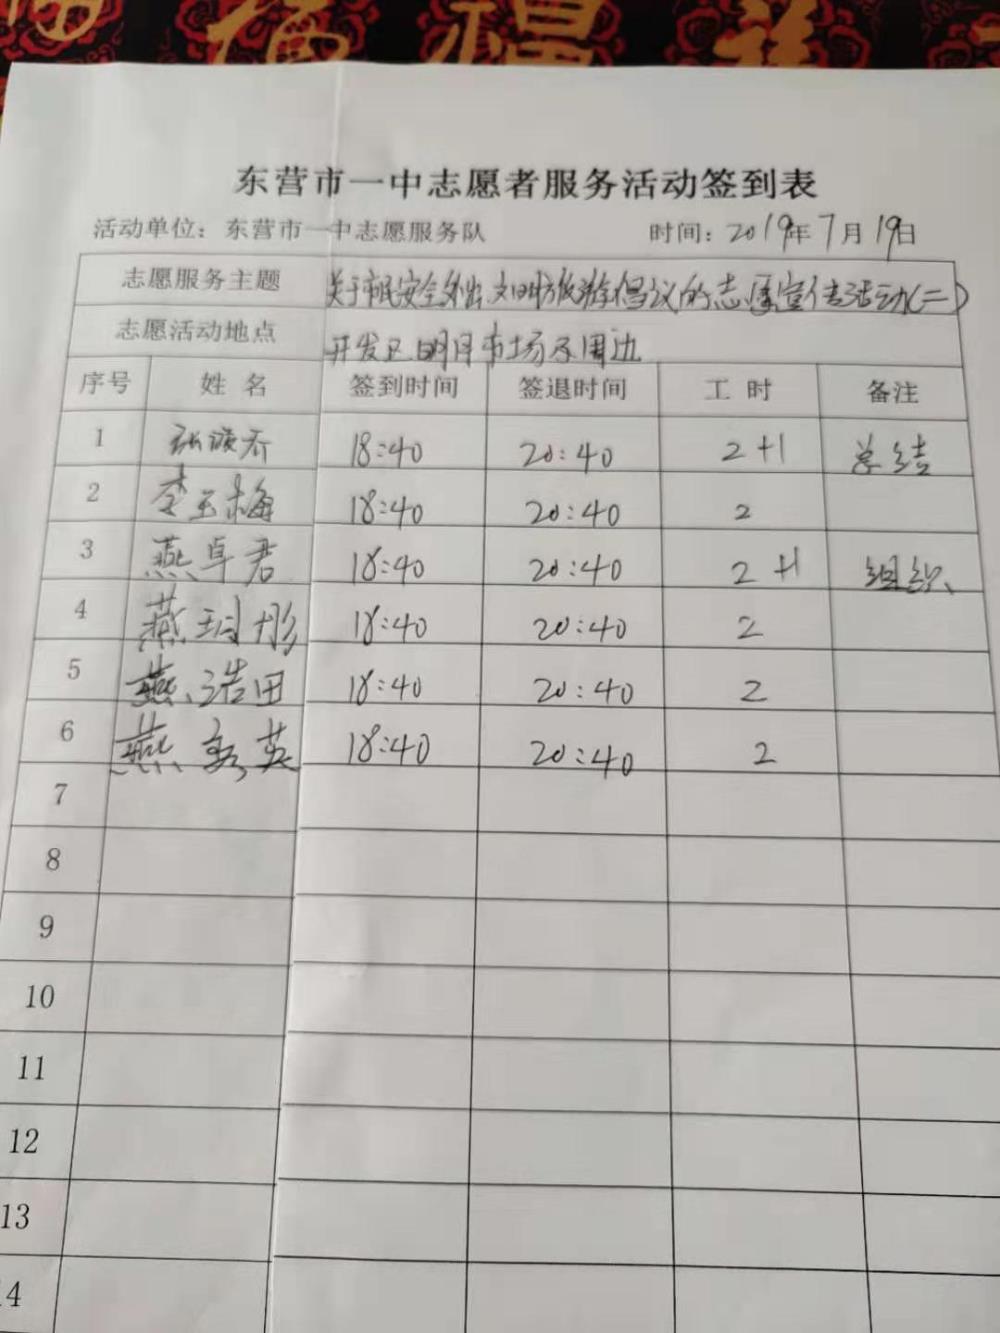 东营市一中志愿者服务活动签到表
活动单位：东营市一中志愿服务队 时间：2019年7月19日
志愿服务主题 关于市民安全外出、文明旅游倡议的志愿宣传活动(二)
志愿活动地点 开发区明月市场及周边
序号 姓名 签到时间 签退时间 工时 备注
1 18:40 20:40 2+1 总结
2 李玉梅 18:40 20:40 2
3 燕卓君 18:40 20:40 2+1 组织
4 燕 18:40 20:40 2
5 燕浩田 18:40 20:40 2
6 燕秀英 18:40 20:40 2
7
8
9
10
11
12
13
14